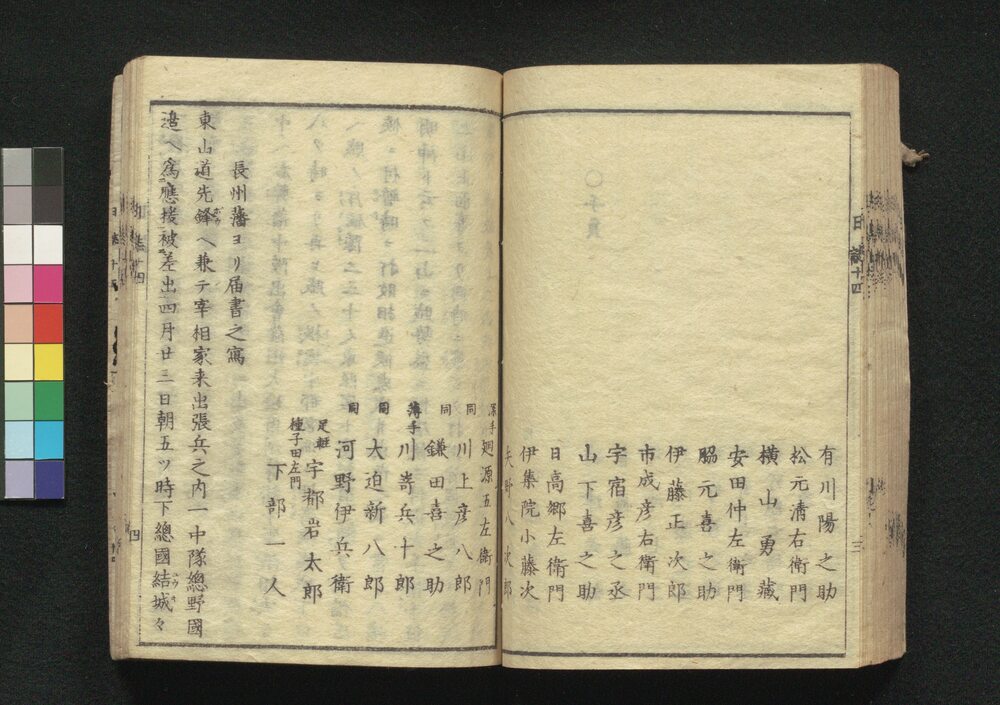 有川陽之助
松元清右衛門
横山勇藏
安田仲左衛門
脇元喜之助
伊藤正次郎
市成彦右衛門
宇宿彦之丞
山下喜之助
日高郷左衛門
伊集院小藤次
夫野八次郎
日誌十四
三
深手 廻源五左衛門
同 川上彦八郎
同 鎌田喜之助
薄手 川嵜兵十郎
同 大迫新八郎
同 河野伊兵衛
足軽 宇都岩太郎
種子田左門 下部一人
長州藩ヨリ届書之寫
東山道先鋒へ兼テ宰相家来出張兵之内一中隊總野國
邉へ爲應援被差出四月廿三日朝五ツ時下總國結城々
四